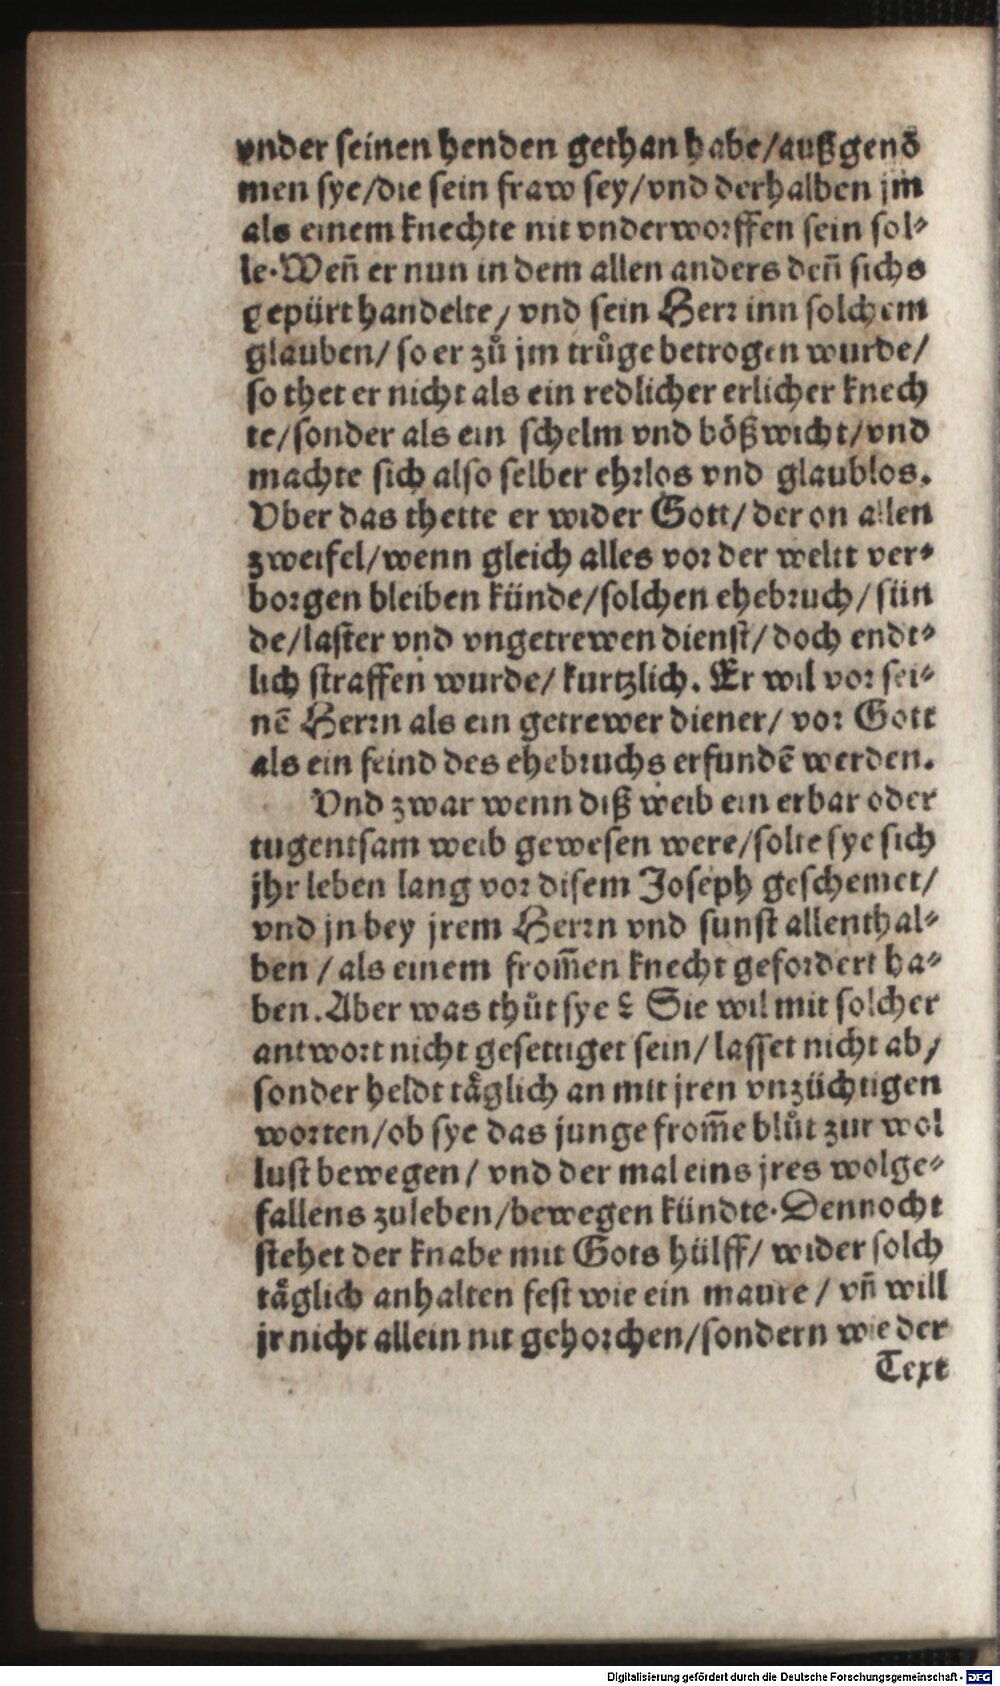 vnder seinen henden gethan habe/außgenō
men sye/die sein fraw sey/vnd derhalben jm
als einem knechte nit vnderworffen sein sol⸗
le. Weñ er nun in dem allen anders deñ sichs
gepürt handelte/ vnd sein Herr inn solchem
glauben/ so er zů jm trůge betrogen wurde/
so thet er nicht als ein redlicher erlicher knech
te/sonder als ein schelm vnd bößwicht/vnd
machte sich also selber ehrlos vnd glaublos.
Vber das thette er wider Gott/ der on allen
zweifel/wenn gleich alles vor der weltt ver⸗
borgen bleiben künde/solchen ehebruch/sün
de/laster vnd vngetrewen dienst/ doch endt⸗
lich straffen wurde/ kurtzlich. Er wil vor sei⸗
nē Herrn als ein getrewer diener/ vor Gott
als ein feind des ehebruchs erfundē werden.
Vnd zwar wenn diß weib ein erbar oder
tugentsam weib gewesen were/solte sye sich
jhr leben lang vor disem Joseph geschemet/
vnd jn bey jrem Herrn vnd sunst allenthal⸗
ben/als einem from̄en knecht gefordert ha⸗
ben. Aber was thůt sye? Sie wil mit solcher
antwort nicht gesettiget sein/ lasset nicht ab/
sonder heldt täglich an mit jren vnzüchtigen
worten/ob sye das junge from̄e blůt zur wol
lust bewegen/ vnd der mal eins jres wolge⸗
fallens zuleben/bewegen kündte. Dennocht
stehet der knabe mit Gots hülff/ wider solch
täglich anhalten fest wie ein maure/ vñ will
jr nicht allein nit gehorchen/sondern wie der
Text
Digitalisierung gefördert durch die Deutsche Forschungsgemeinschaft - DFG